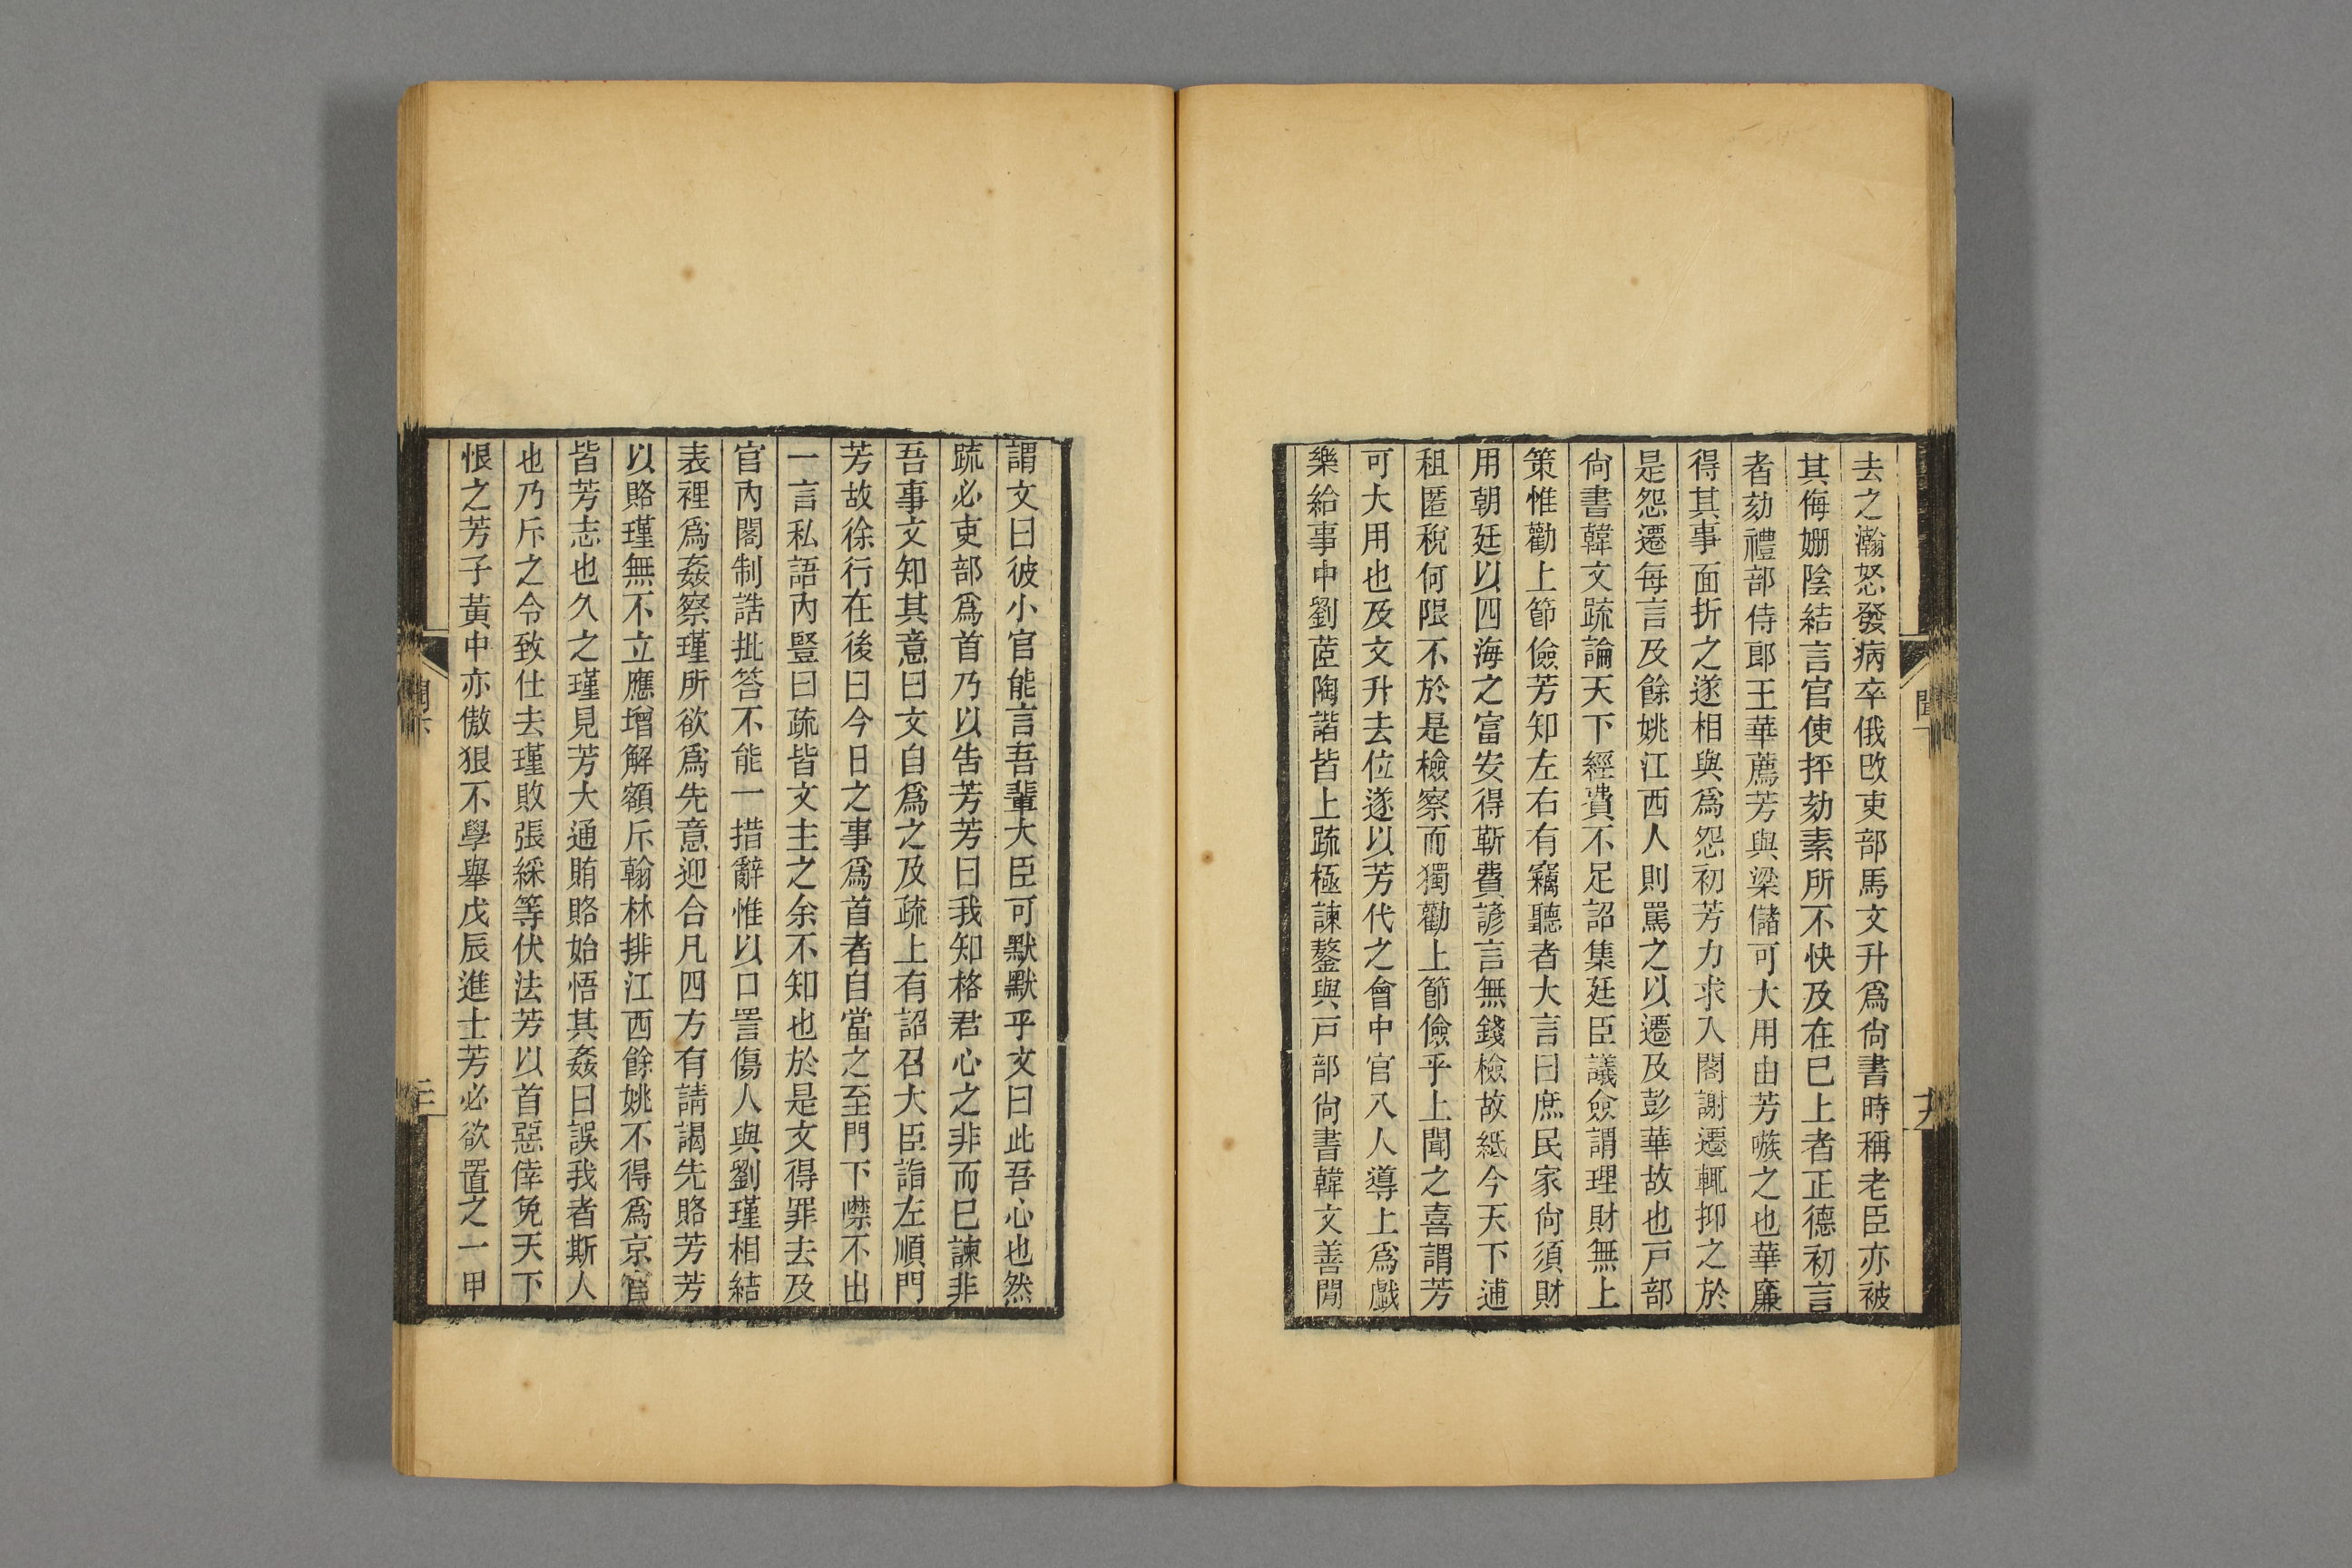 去之瀚怒發病卒俄改吏部馬文升爲尚書時稱老臣亦被
其侮姍陰結言官使抨劾素所不快及在巳上者正德初言
者劾禮部侍郎王華薦芳與梁儲可大用由芳嗾之也華廉
得其事面折之遂相與爲怨初芳力求入閣謝遷輒抑之於
是怨遷每言及餘姚江西人則罵之以遷及彭華故也戸部
尚書韓文疏論天下經費不足詔集廷臣議僉謂理財無上
策惟勸上節儉芳知左右有竊聽者大言曰庶民家尚須財
用朝廷以四海之富安得靳費諺言無錢檢故紙今天下逋
租匿稅何限不於是檢察而獨勸上節儉乎上聞之喜謂芳
可大用也及文升去位遂以芳代之會中官八人導上爲戲
樂給事中劉茝陶諧皆上疏極諫鏊與戸部尚書韓文善閒
謂文曰彼小官能言吾輩大臣可默默乎文曰此吾心也然
疏必吏部爲首乃以告芳芳曰我知格君心之非而巳諫非
吾事文知其意曰文自爲之及疏上有詔召大臣詣左順門
芳故徐行在後曰今日之事爲首者自當之至門下噤不出
一言私語內豎曰疏皆文主之余不知也於是文得罪去及
官內閣制誥批答不能一措辭惟以口詈傷人與劉瑾相結
表裡爲姦察瑾所欲爲先意迎合凡四方有請謁先賂芳芳
以賂瑾無不立應增解額斥翰林排江西餘姚不得爲京官
皆芳志也久之瑾見芳大通賄賂始悟其姦曰誤我者斯人
也乃斥之令致仕去瑾敗張綵等伏法芳以首惡倖免天下
恨之芳子黃中亦傲狠不學舉戊辰進士芳必欲置之一甲